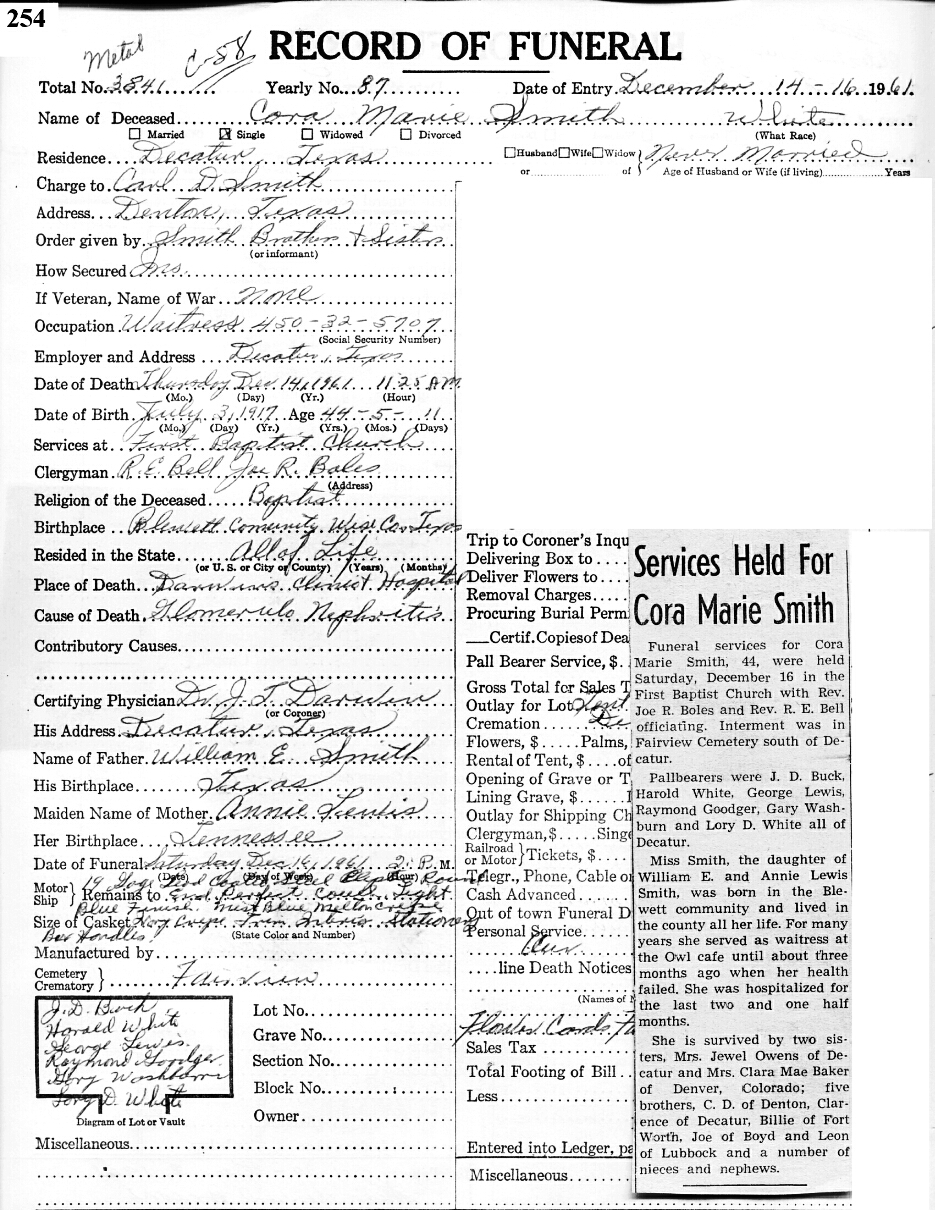 254
Metal
C-58
RECORD OF FUNERAL
Total No. 3841 Yearly No. 87 Date of Entry December 14-16 1961
Name of Deceased Cora Marie Smith White
Married Single Widowed Divorced (What Race)
Residence Decatur, Texas Husband Wife Widow } Never Married
or of Age of Husband or Wife (if living) Years
Charge to Carl D. Smith
Address Denton, Texas
Order given by Smith Brothers + Sisters
(or informant)
How Secured Ins.
If Veteran, Name of War none
Occupation Waitress 450-32-5707
(Social Security Number)
Employer and Address Decatur, Texas
Date of Death Thursday Dec 14, 1961 11:25 A.M.
(Mo.) (Day) (Yr.) (Hour)
Date of Birth July 3, 1917 Age 44-5-11
(Mo.) (Day) (Yr.) (Yrs.) (Mos.) (Days)
Services at First Baptist Church
Clergyman R.E. Bell Joe R. Boles
(Address)
Religion of the Deceased Baptist
Birthplace Blewett Comunity Wise Co. Texas
Resided in the State All of Life
(or U. S. or City or County) (Years) (Months)
Place of Death Clinic + Hospital
Cause of Death Glomerulo Nephritis
Contributory Causes
Certifying Physician Dr. J. T.
(or Coroner)
His Address Decatur, Texas
Name of Father William E. Smith
His Birthplace Texas
Maiden Name of Mother Annie Lewis
Her Birthplace Tennessee
Date of Funeral Saturday Dec 16, 1961 2: P.M.
(Date) (Day of Week) (Hour)
Motor
Ship } Remains to
Blue Finish
Size of Casket
(State Color and Number)
Bar Handles
Manufactured by
Cemetery
Crematory } Fairview
J. D. Buck
Harold White
George Lewis
Raymond Goodger
Gary Washburn
Lory D. White
Diagram of Lot or Vault
Lot No.
Grave No.
Section No.
Block No.
Owner
Miscellaneous
Trip to Coroner's Inqu
Delivering Box to
Deliver Flowers to
Removal Charges
Procuring Burial Perm
Certif. Copies of Dea
Pall Bearer Service, $
Gross Total for Sales T
Outlay for Lot
Cremation
Flowers, $ Palms,
Rental of Tent, $ of
Opening of Grave or T
Lining Grave, $
Outlay for Shipping Ch
Clergyman, $ Singe
Railroad
or Motor } Tickets, $
Telegr., Phone, Cable or
Cash Advanced
Out of town Funeral D
Personal Service
line Death Notices
(Names of N
Flowers Cards
Sales Tax
Total Footing of Bill
Less
Entered into Ledger, pa
Miscellaneous
Services Held For
Cora Marie Smith
Funeral services for Cora
Marie Smith, 44, were held
Saturday, December 16 in the
First Baptist Church with Rev.
Joe R. Boles and Rev. R. E. Bell
officiating. Interment was in
Fairview Cemetery south of De-
catur.
Pallbearers were J. D. Buck,
Harold White, George Lewis,
Raymond Goodger, Gary Wash-
burn and Lory D. White all of
Decatur.
Miss Smith, the daughter of
William E. and Annie Lewis
Smith, was born in the Ble-
wett community and lived in
the county all her life. For many
years she served as waitress at
the Owl cafe until about three
months ago when her health
failed. She was hospitalized for
the last two and one half
months.
She is survived by two sis-
ters, Mrs. Jewel Owens of De-
catur and Mrs. Clara Mae Baker
of Denver, Colorado; five
brothers, C. D. of Denton, Clar-
ence of Decatur, Billie of Fort
Worth, Joe of Boyd and Leon
of Lubbock and a number of
nieces and nephews.